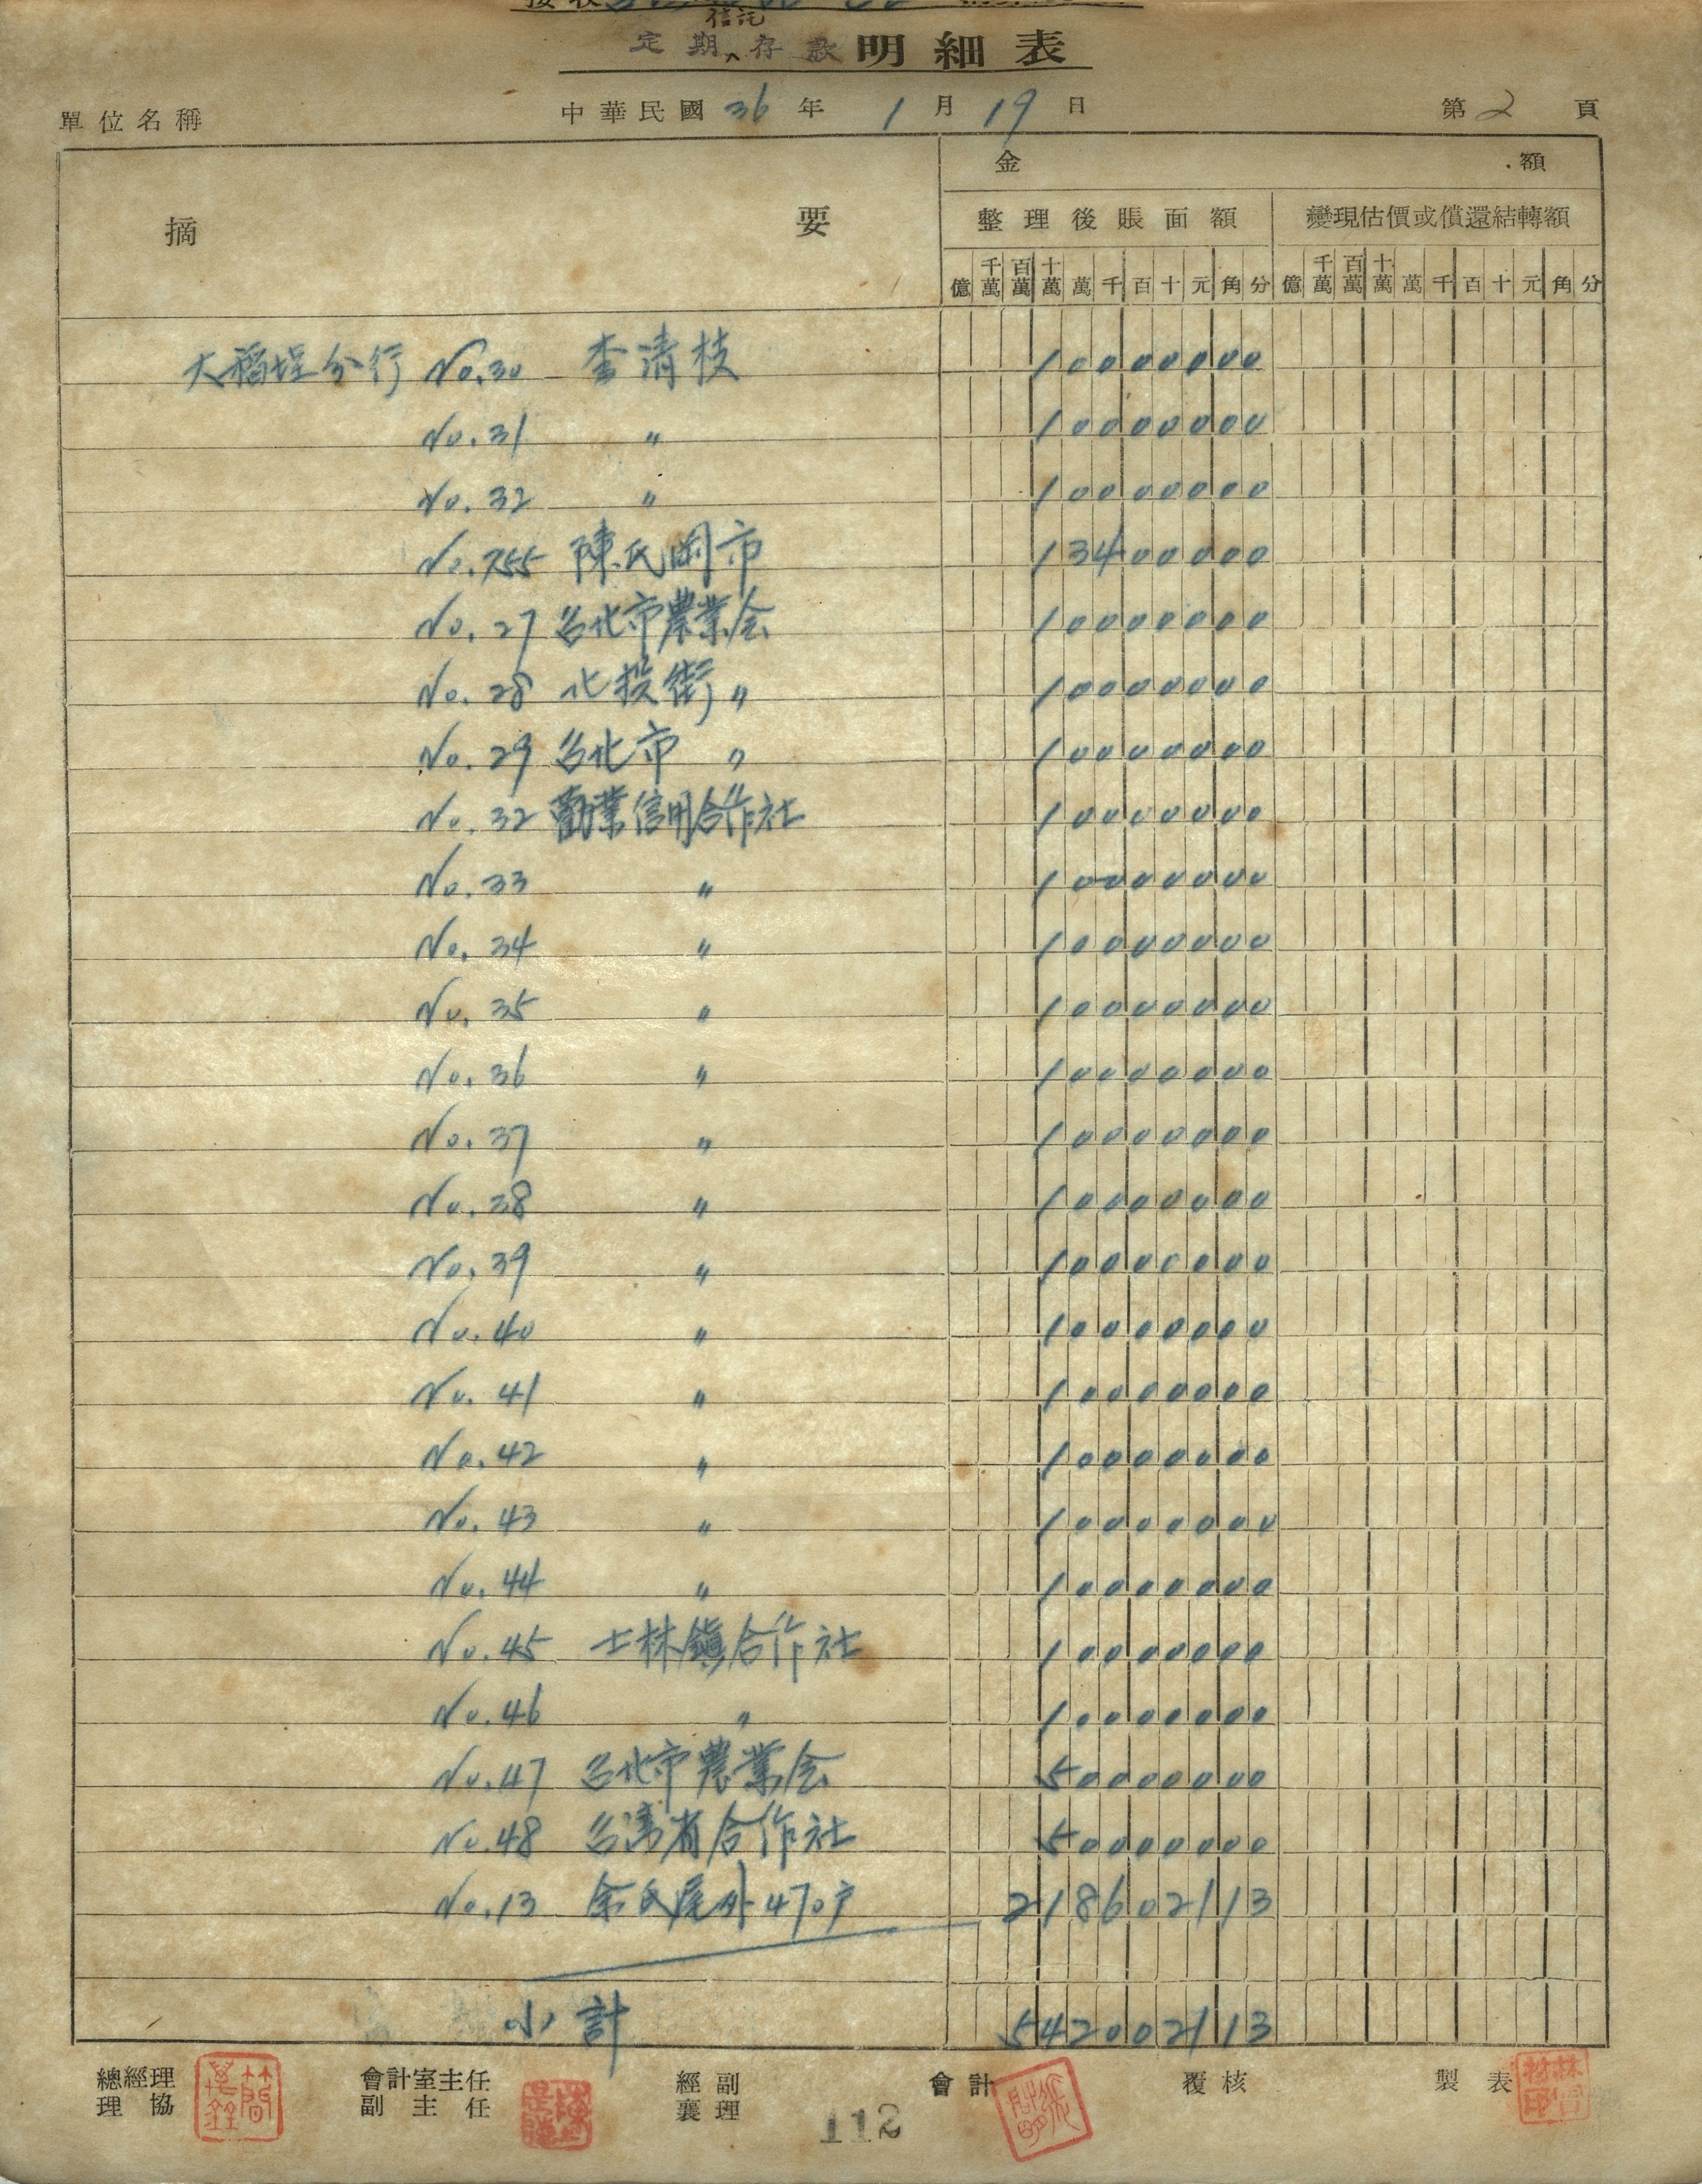 接收
信託
定期存款明細表
單位名稱 中華民國36年1月19日 第2頁
摘要 金額
整理後賬面額 變現估價或償還結轉額
億 千萬 百萬 十萬 萬 千 百 十 元 角 分 億 千萬 百萬 十萬 萬 千 百 十 元 角 分
大稻埕分行 No.30 李清枝 10000000
No.31 〃 10000000
No.32 〃 10000000
No.755 陳氏罔市 13400000
No.27 台北市農業会 10000000
No.28 北投街〃 10000000
No.29 台北市〃 10000000
No.32 勸業信用合作社 10000000
No.33 〃 10000000
No.34 〃 10000000
No.35 〃 10000000
No.36 〃 10000000
No.37 〃 10000000
No.38 〃 10000000
No.39 〃 10000000
No.40 〃 10000000
No.41 〃 10000000
No.42 〃 10000000
No.43 〃 10000000
No.44 〃 10000000
No.45 士林鎮合作社 10000000
No.46 〃 10000000
No.47 台北市農業会 50000000
No.48 台湾省合作社 50000000
No.13 余氏尾外470户 218602113
小計 542002113
總經理 會計室主任 經副 會計 覆核 製表
理協 副主任 襄理
112